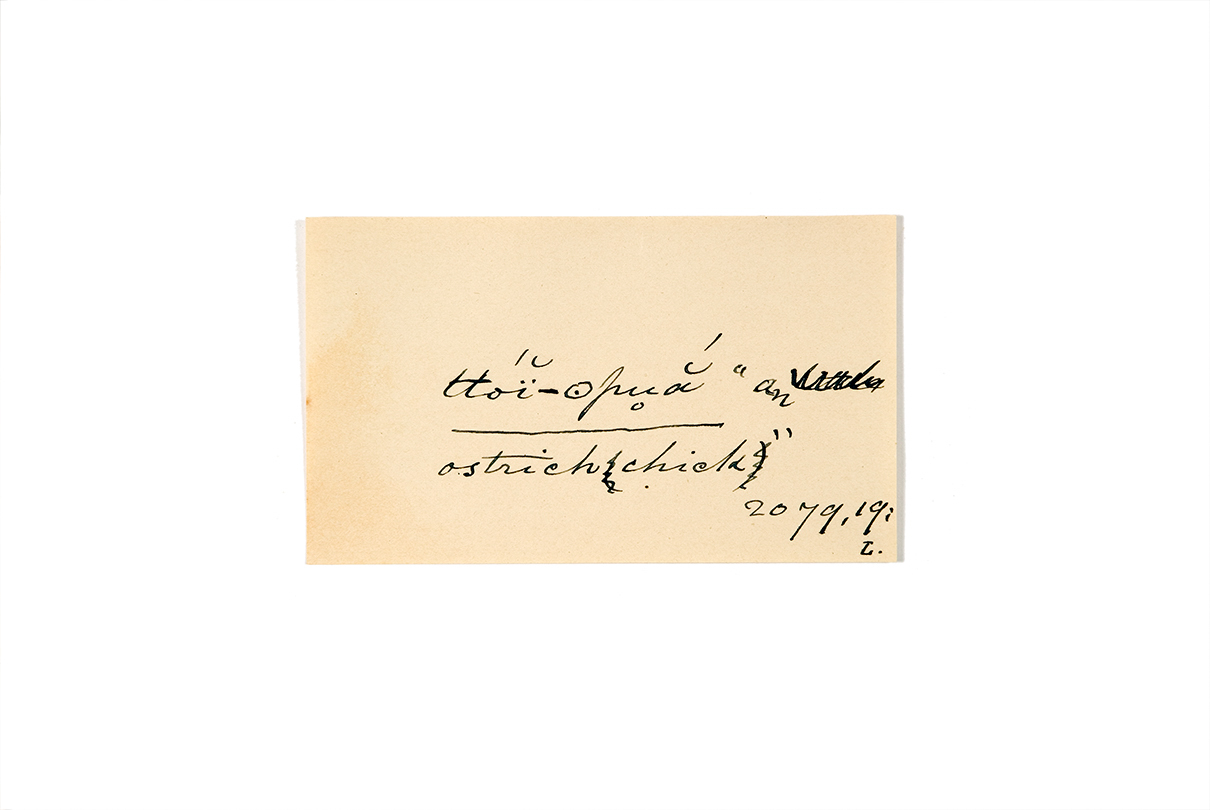 ttóï̆-ɵpu̥ắ " an
ostrich chick"
2079, 19;
L.